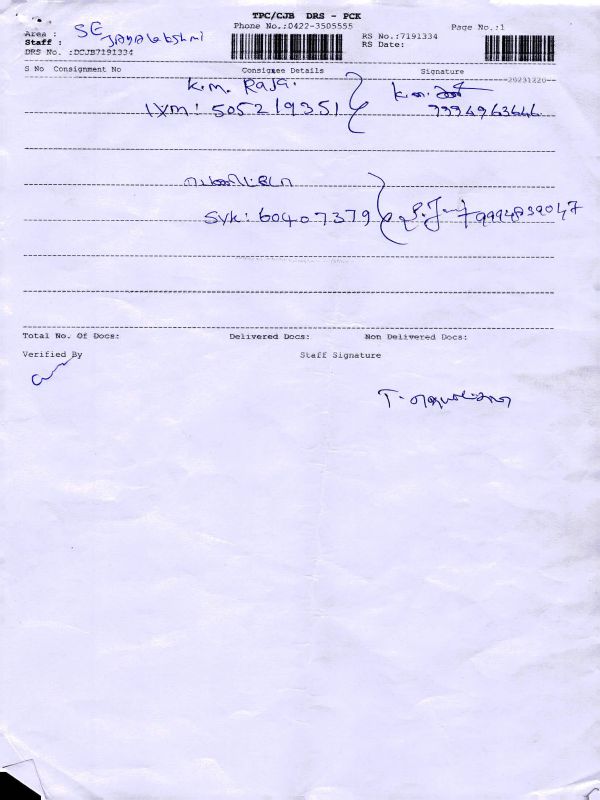 TPC/CJB DRS - PCK
Phone No.:0422-3505555
Page No.:1
Area : SE
Staff : Jayalakshmi
DRS No. :DCJB7191334
RS No.:7191334
RS Date:
S No Consignment No Consignee Details Signature
--20231220--
K.M. Raja.
IXM: 505219351
K.M.
7994963646
SVK: 60407379
9994839047
Total No. Of Docs: Delivered Docs: Non Delivered Docs:
Verified By Staff Signature